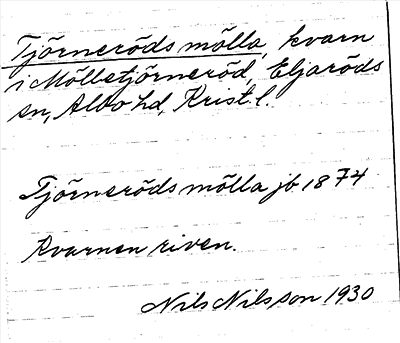 Tjörneröds mölla, kvarn
i Mölletjörneröd, Eljaröds
sn, Albo hd, Krist. l.
Tjörneröds mölla jb 1874
Kvarnen riven.
Nils Nilsson 1930